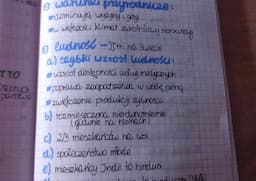 ① warunki przyrodnicze:
• dominują wyżyny i góry
• w większości klimat zwrotnikowy monsunowy
② ludność -
a.) szybki wzrost ludności:
• wzrost dostępności usług medycznych
• poprawa zaopatrzenia w wodę pitną
• zwiększenie produkcji żywności
b) rozmieszczona nierównomiernie
(głównie na nizinach)
c) 2/3 mieszkańców na wsi
d) społeczeństwo młode
e) mieszkańcy Indii to hindusi